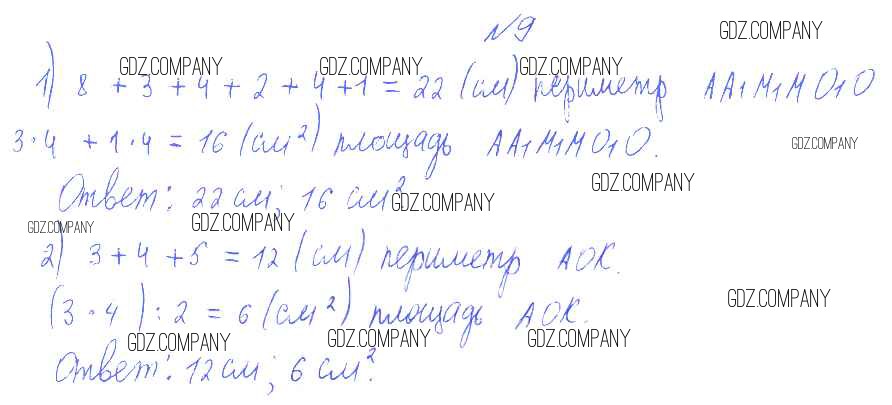 №9
GDZ.COMPANY
GDZ.COMPANY GDZ.COMPANY GDZ.COMPANY
1) 8 + 3 + 4 + 2 + 4 + 1 = 22 (см) периметр AA1M1MO1O
3·4 + 1·4 = 16 (см²) площадь AA1M1MO1O.
GDZ.COMPANY
Ответ: 22 см; 16 см²
GDZ.COMPANY GDZ.COMPANY
GDZ.COMPANY GDZ.COMPANY
2) 3 + 4 + 5 = 12 (см) периметр AOK.
(3·4) : 2 = 6 (см²) площадь AOK.
GDZ.COMPANY
GDZ.COMPANY GDZ.COMPANY GDZ.COMPANY
Ответ: 12 см; 6 см².